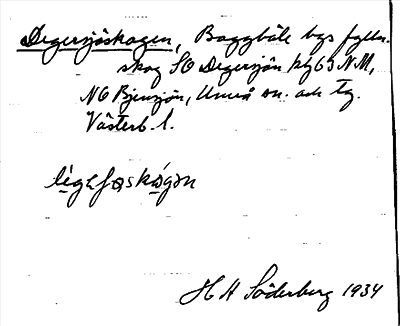 Degersjöskogen, Baggböle bys fylln.
skog SO Degersjön kbl 63 N.M,
NO Bjensjön, Umeå sn. och tg.
Västerb. l.
H A Söderberg 1934